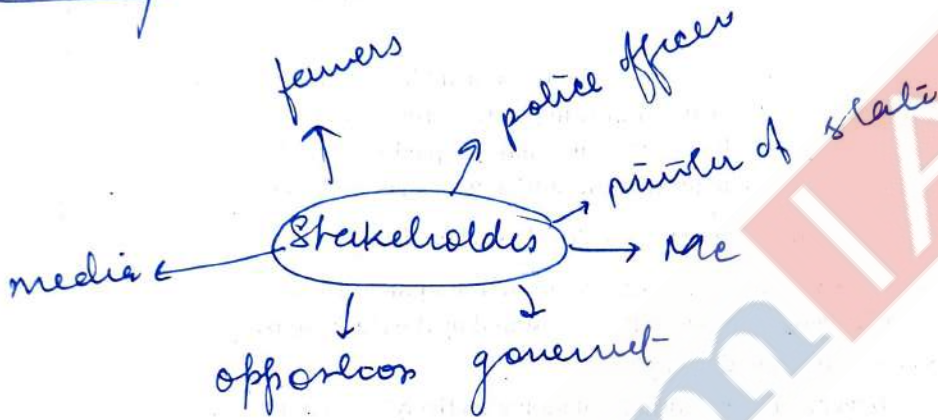 farmers
police officer
minister of state
Stakeholders
media
me
opposition
government
mIA